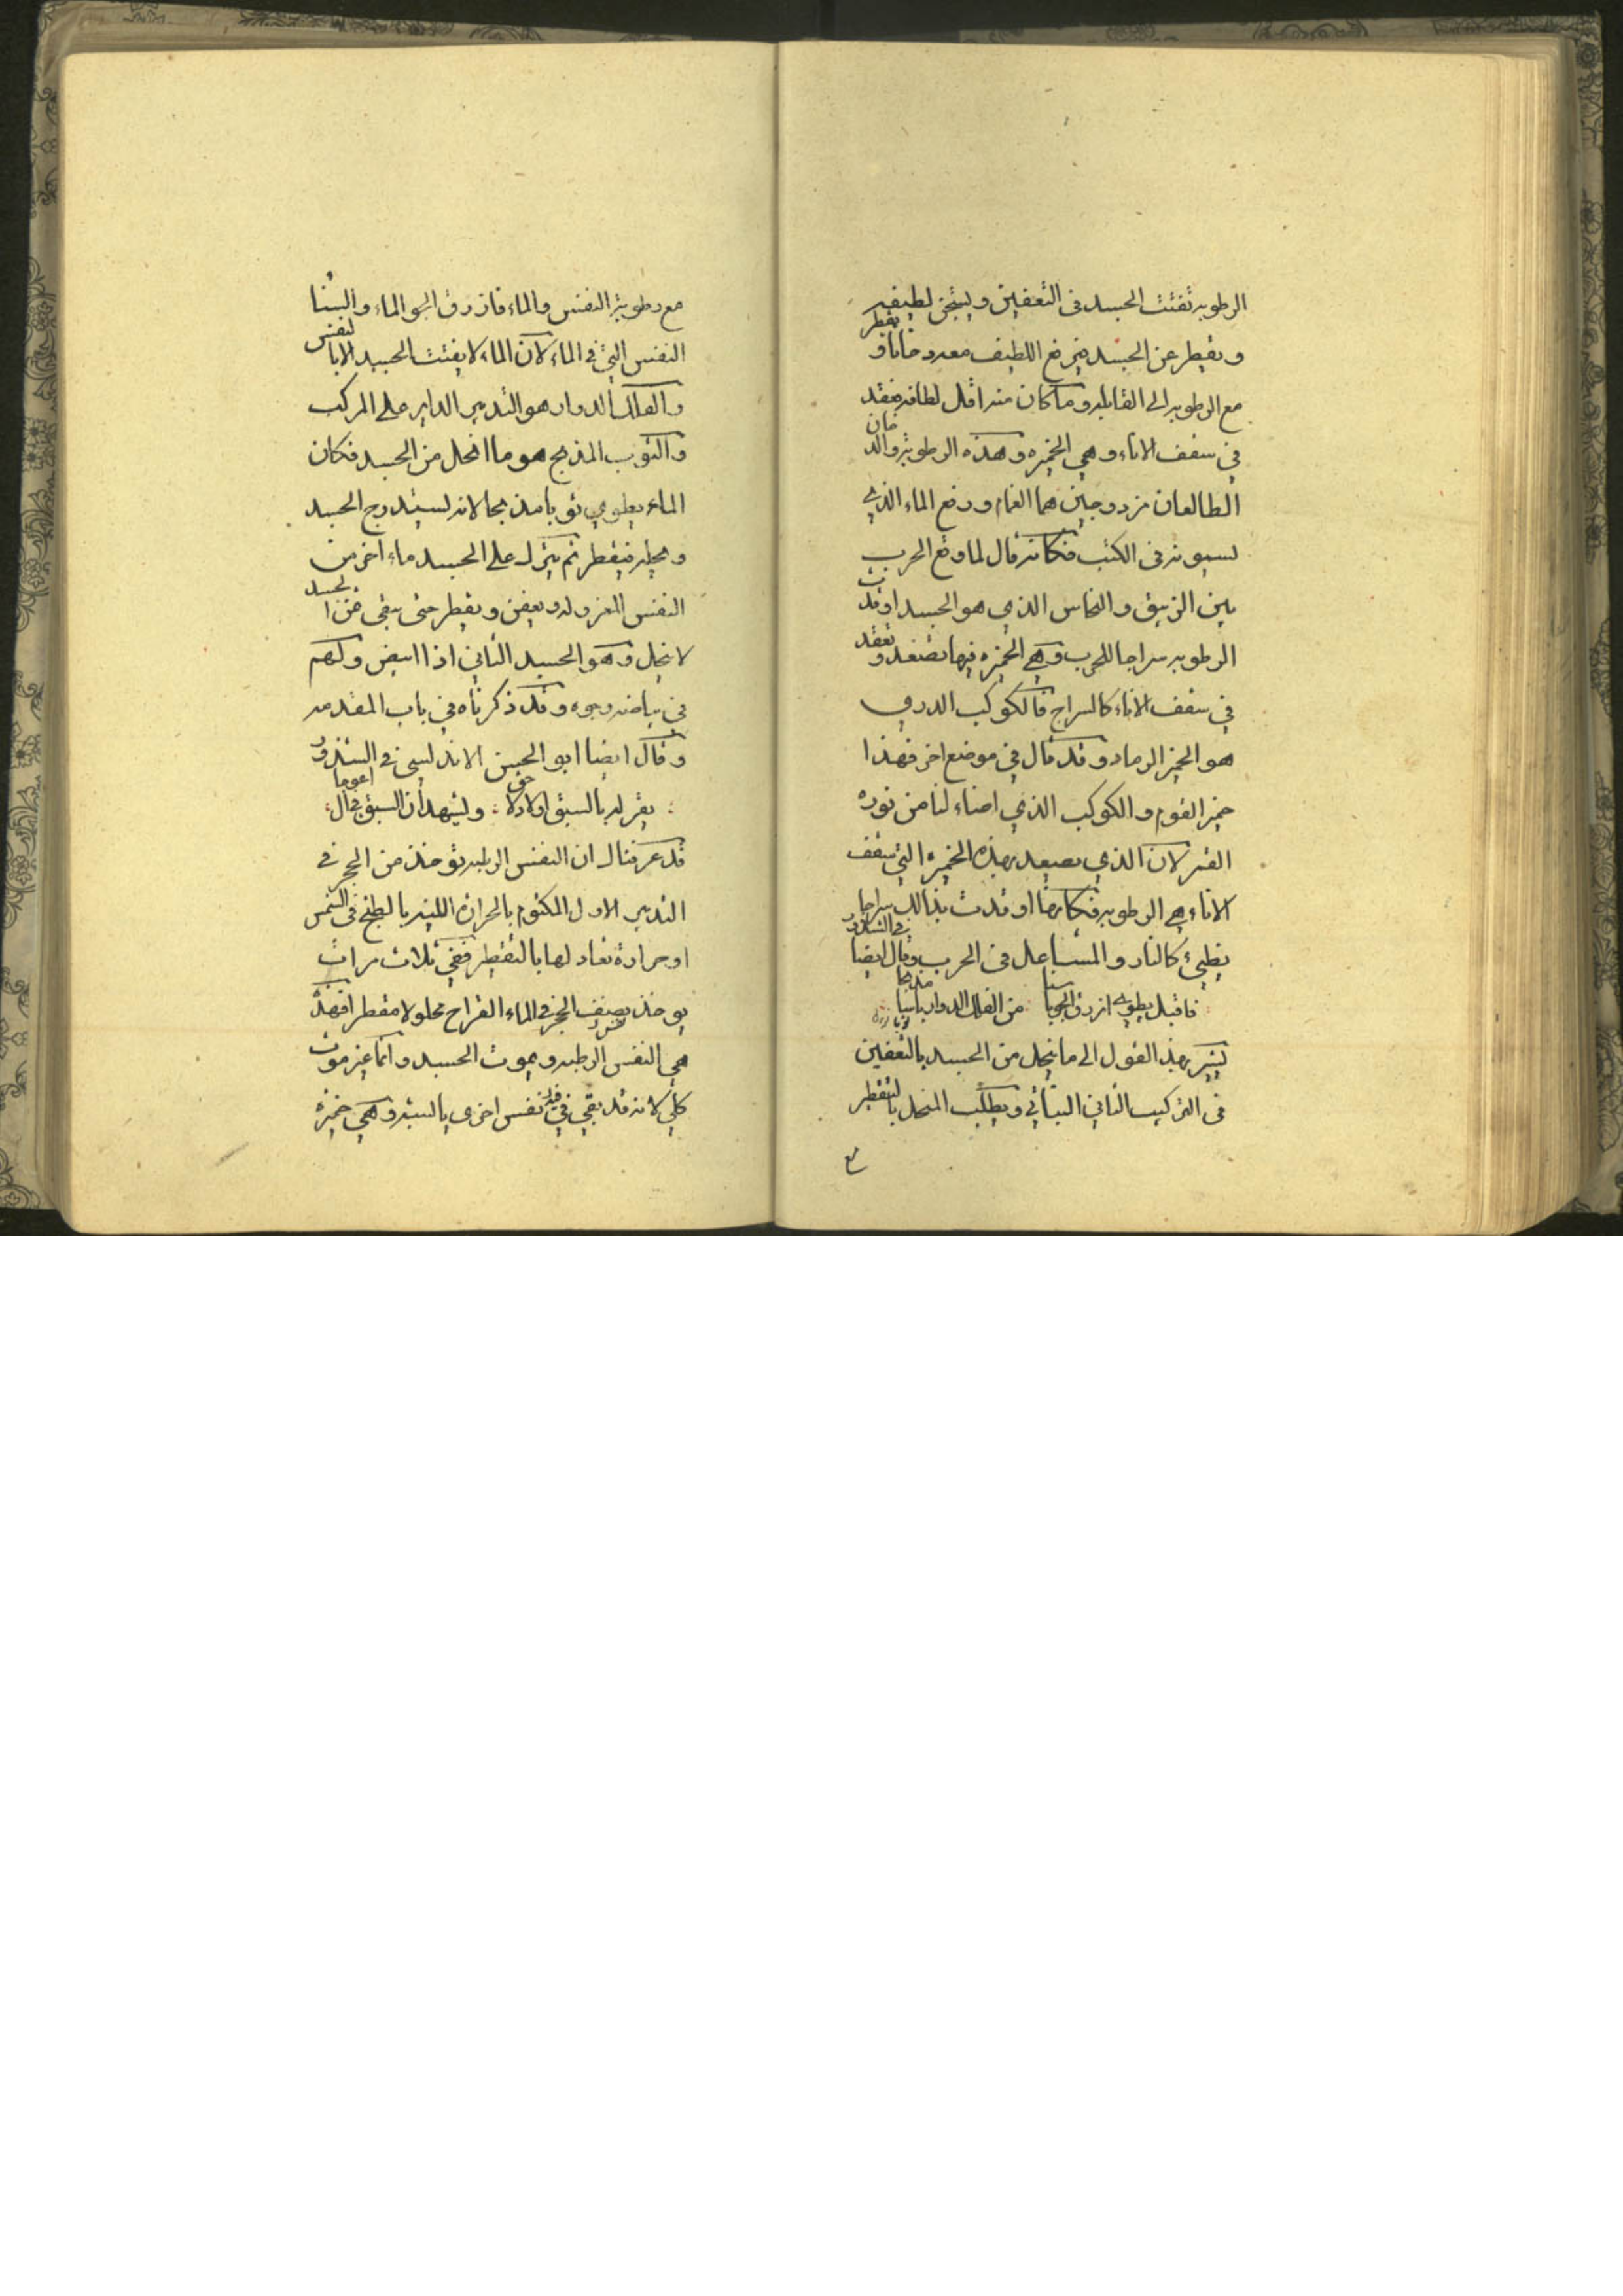 الرطوبه تفتت الجسد فى التعفين ويستجن لطيفه
ويقطر عن الجسد فيرفع اللطيف معه دخانا ويقطر
مع الرطوبه الى القابله وما كان منه اقل لطافه يعقد
في سقف الاناء وهي الخميره وهذه الرطوبة والدخان
الطالعان مزدوجين هما الغمام ورفع الماء الذي
يسمونه فى الكتب فكانه قال لما وقع الحرب
بين الزيبق والنحاس الذي هو الجسد اوقدت
الرطوبه سراجا للحرب وهي الخميره فيها تصعد وتعقد
في سقف الاناء كالسراج فالكوكب الدري
هو الخمير الرماد وقد قال في موضع اخر فهذا
خمير القوم والكوكب الذي اضاء لنا من نوره
القمر لان الذي يصعد بهذه الخميره التي سقف
الاناء هي الرطوبه فكانها اوقدت بذالك سراجا
يطيء كالنار والمشاعل فى الحرب وقال ايضا في الشذور
فاقبل يطوي ازرق من الفلك الدوار
يشير بهذا القول الى ما ينحل من الجسد بالتعفين
فى التركيب الثاني النباتي ويطلب المنحل بالتقطير
مع رطوبة النفس والماء فازرق الجو الماء والسنا
النفس التي في الماء لان الماء لا يفتت الجسد الا بالنفس
والفلك الدوار هو التدبير الداير على المركب
والثوب المدبج هو ما انحل من الجسد فكان
الماء يطوي ثوبا مدبجا لانه يستدرج الجسد
ويحله فيقطر ثم ينزل على الجسد ماء اخر من
النفس المعزوله ويعفن ويقطر حتى يبقى من الجسد
لا ينحل وهو الجسد الثاني اذا ابيض ولهم
في بياضه وجوه وقد ذكرناه في باب المقدمه
وقال ايضا ابو الحسن الاندلسي في الشذور
يقر له بالسبق اولاد لاحق ويشهد ان السبق في آل اعوجا
قد عرفنا ان النفس الرطبه توخذ من الحجر في
التدبير الاول المكتوم بالحرارة اللينه بالطبخ فى الشمس
او حرارة تعادلها بالتقطير ففي ثلاث مرات
يوخذ نصف الحجر في الماء القراح محلولا مقطرا فهذه
هي النفس الرطبه ويموت الجسد وانما غير موت
كلي لانه قد بقي فيه نفس اخرى يابسه وهي خميرة